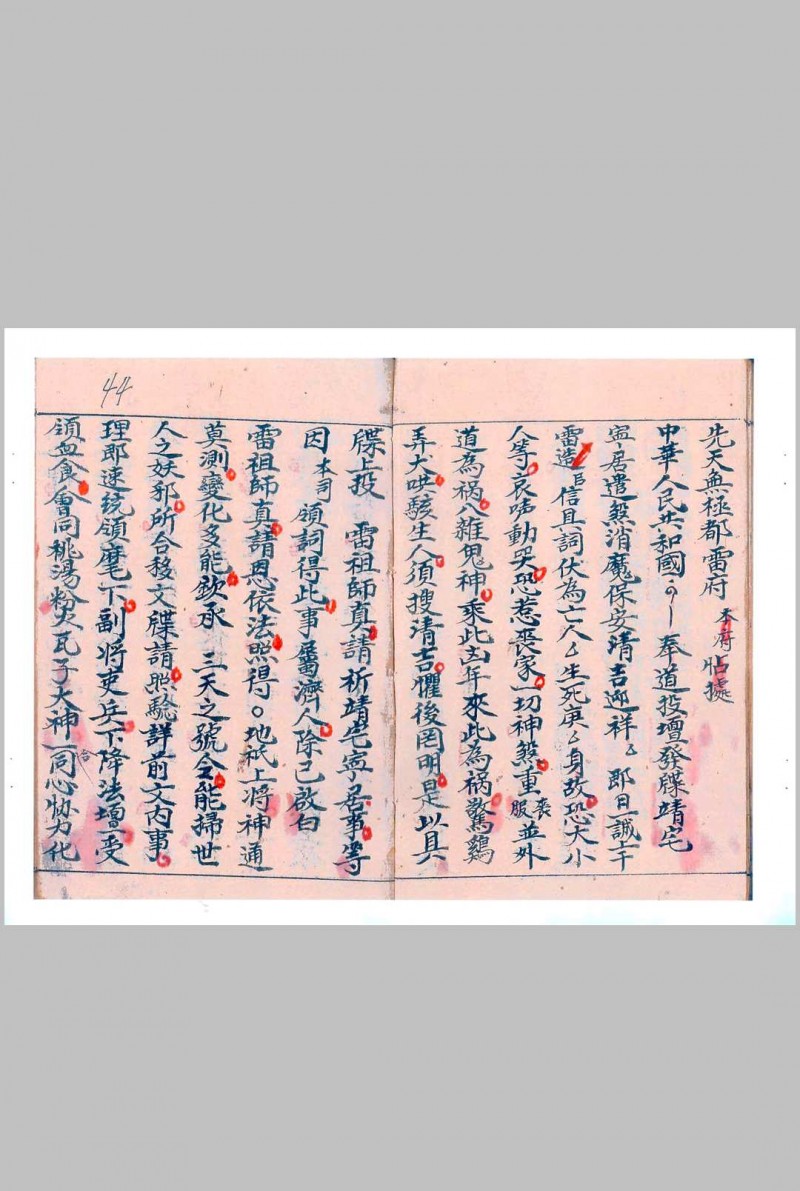 先天無極都雷府 本府 帖據
中華人民共和國 奉道投壇發牒靖宅
寍居遣煞消魔保安清吉迎祥ム即日誠上干
雷造 信具詞伏為亡人ム生死庚ム身故恐大小
人等哀哭動哭恐惹喪家一切神煞重喪服並外
道為祸八雜鬼神乘此凶年來此為祸驚鷄
弄犬哄駭生人須搜清吉懼後罔明是以具
牒上投 雷祖師真請祈靖宅寧居事等
因本司領詞得此事屬濟人除已啟白
雷祖師真請恩依法照得。地祇上將神通
莫測變化多能欽承 三天之號令能掃世
人之妖邪所合移文牒請照驗詳前文內事
理即速統領麾下副將吏兵下降法壇受
領血食會同桃湯粉火瓦子大神一合同心協力化
44